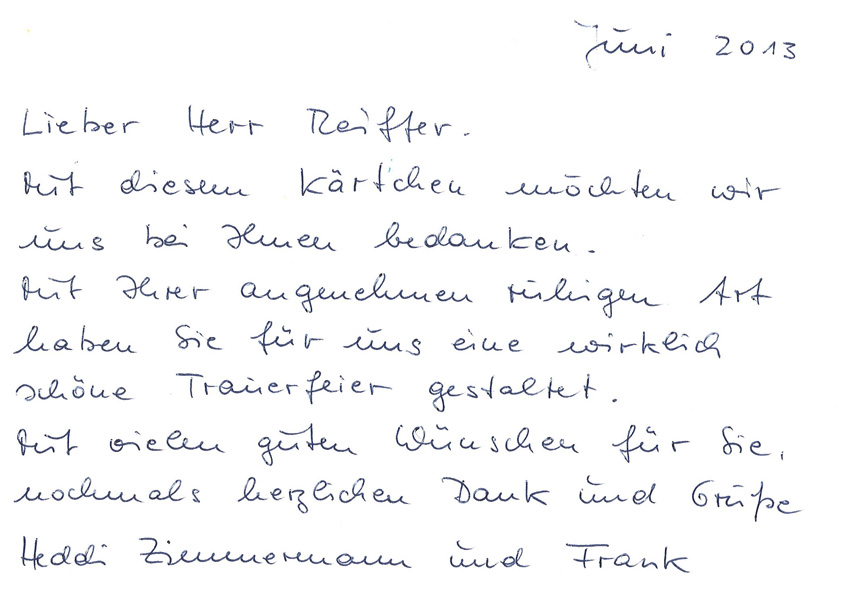 Juni 2013
Lieber Herr Reiffer.
Mit diesem Kärtchen möchten wir
uns bei Ihnen bedanken.
Mit Ihrer angenehmen ruhigen Art
haben Sie für uns eine wirklich
schöne Trauerfeier gestaltet.
Mit vielen guten Wünschen für Sie,
nochmals herzlichen Dank und Grüße
Heddi Zimmermann und Frank